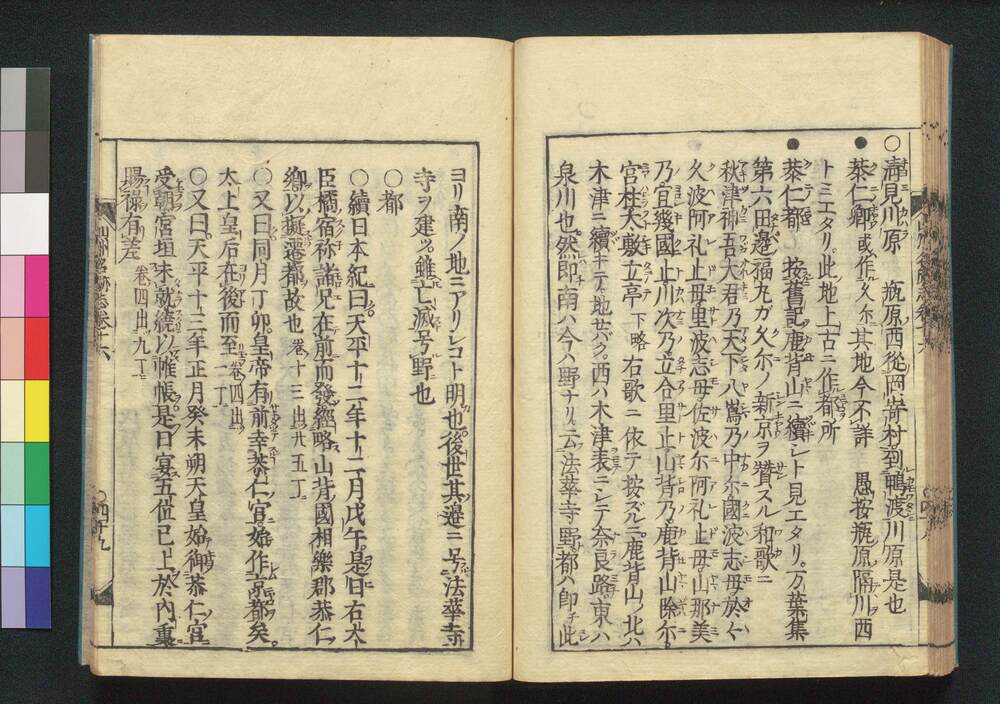 ○濤見川原　瓶原西從岡﨑村到鴫渡川原是也
●恭仁卿或作久尓其地今不詳　愚按瓶原隔川西
トミエタリ此地上古ニ作都所
●恭仁都　按舊記鹿背山ニ續シト見エタリ万葉集
第六田邊福丸ガ久尓ノ新京ヲ賛スル和歌ニ
秋津神吾大君乃天下八嶌乃中尓國波志母於保久
久波阿礼止母里波志母佐波尓阿礼止母山那美
乃宜幾國止川次乃立合里止山背乃鹿背山際尓
宮柱太敷立亭下略　右歌ニ依テ按ズルニ鹿背山ノ北ハ
木津ニ續キテ地セバク西ハ木津表ニシテ奈良路東ハ
泉川也然即南ハ今ハ野ナリ云法華寺野都ハ即チ此
ヨリ南ノ地ニアリシコト明也後世其邊ニ号法華寺
寺ヲ建ツ雖亡滅号野也
○都
○續日本紀曰天平十二年十二月戊午是日右大
臣橘宿祢諸兄在前而發經略山背國相樂郡恭仁
郷以擬遷都故也卷十三出廿五丁
○又曰同月丁卯皇帝有前幸恭仁宮始作京都矣
太上皇后在後而至卷四出二丁
○又曰天平十三年正月癸未朔天皇始御恭仁宮
受朝宮垣未就繞以帷帳是日宴五位已上於內裏
賜祿有差　卷四出九丁